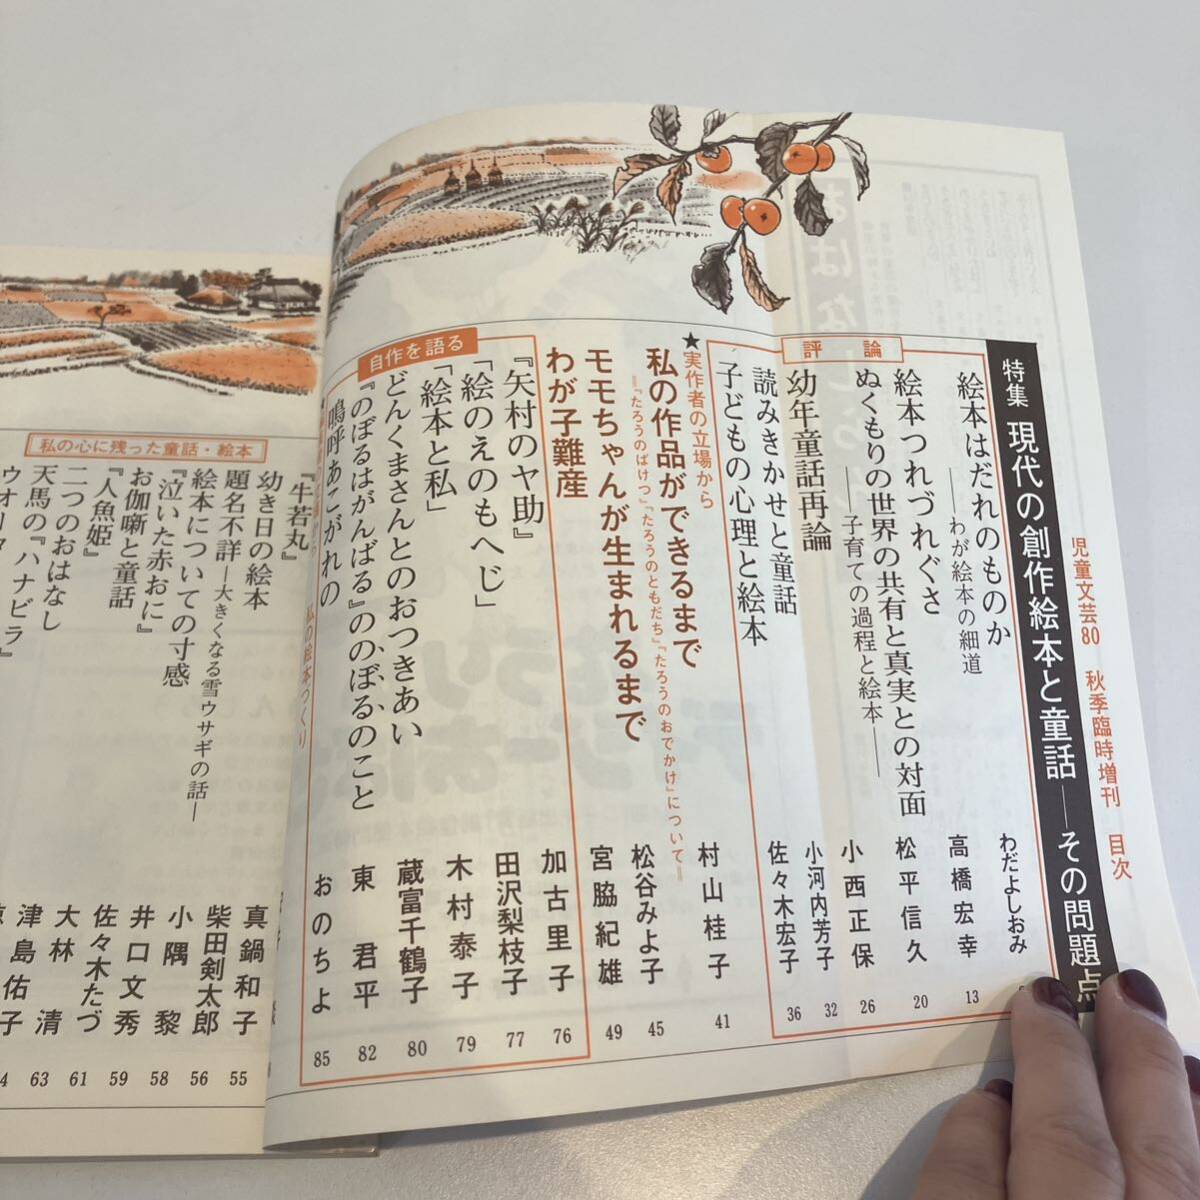 児童文芸80 秋季臨時増刊 目次
特集 現代の創作絵本と童話――その問題点
評論
絵本はだれのものか わだよしおみ
――わが絵本の細道 高橋宏幸 13
絵本つれづれぐさ 松平信久 20
ぬくもりの世界の共有と真実との対面 小西正保 26
――子育ての過程と絵本――
幼年童話再論 小河内芳子 32
読みきかせと童話 佐々木宏子 36
子どもの心理と絵本
★実作者の立場から
私の作品ができるまで 村山桂子 41
=『たろうのばけつ』『たろうのともだち』『たろうのおでかけ』について=
モモちゃんが生まれるまで 松谷みよ子 45
わが子難産 宮脇紀雄 49
自作を語る
『矢村のヤ助』 加古里子 76
「絵のえのもへじ」 田沢梨枝子 77
「絵本と私」 木村泰子 79
どんくまさんとのおつきあい 蔵富千鶴子 80
『のぼるはがんばる』ののぼるのこと 東君平 82
嗚呼あこがれの おのちよ 85
私の絵本づくり
私の心に残った童話・絵本
『牛若丸』 真鍋和子 55
幼き日の絵本 柴田剣太郎 56
題名不詳―大きくなる雪ウサギの話― 小隅黎 58
絵本についての寸感 井口文秀 59
『泣いた赤おに』 佐々木たづ 61
お伽噺と童話 大林清 63
『人魚姫』 津島佑子
二つのおはなし
天馬の『ハナビラ』